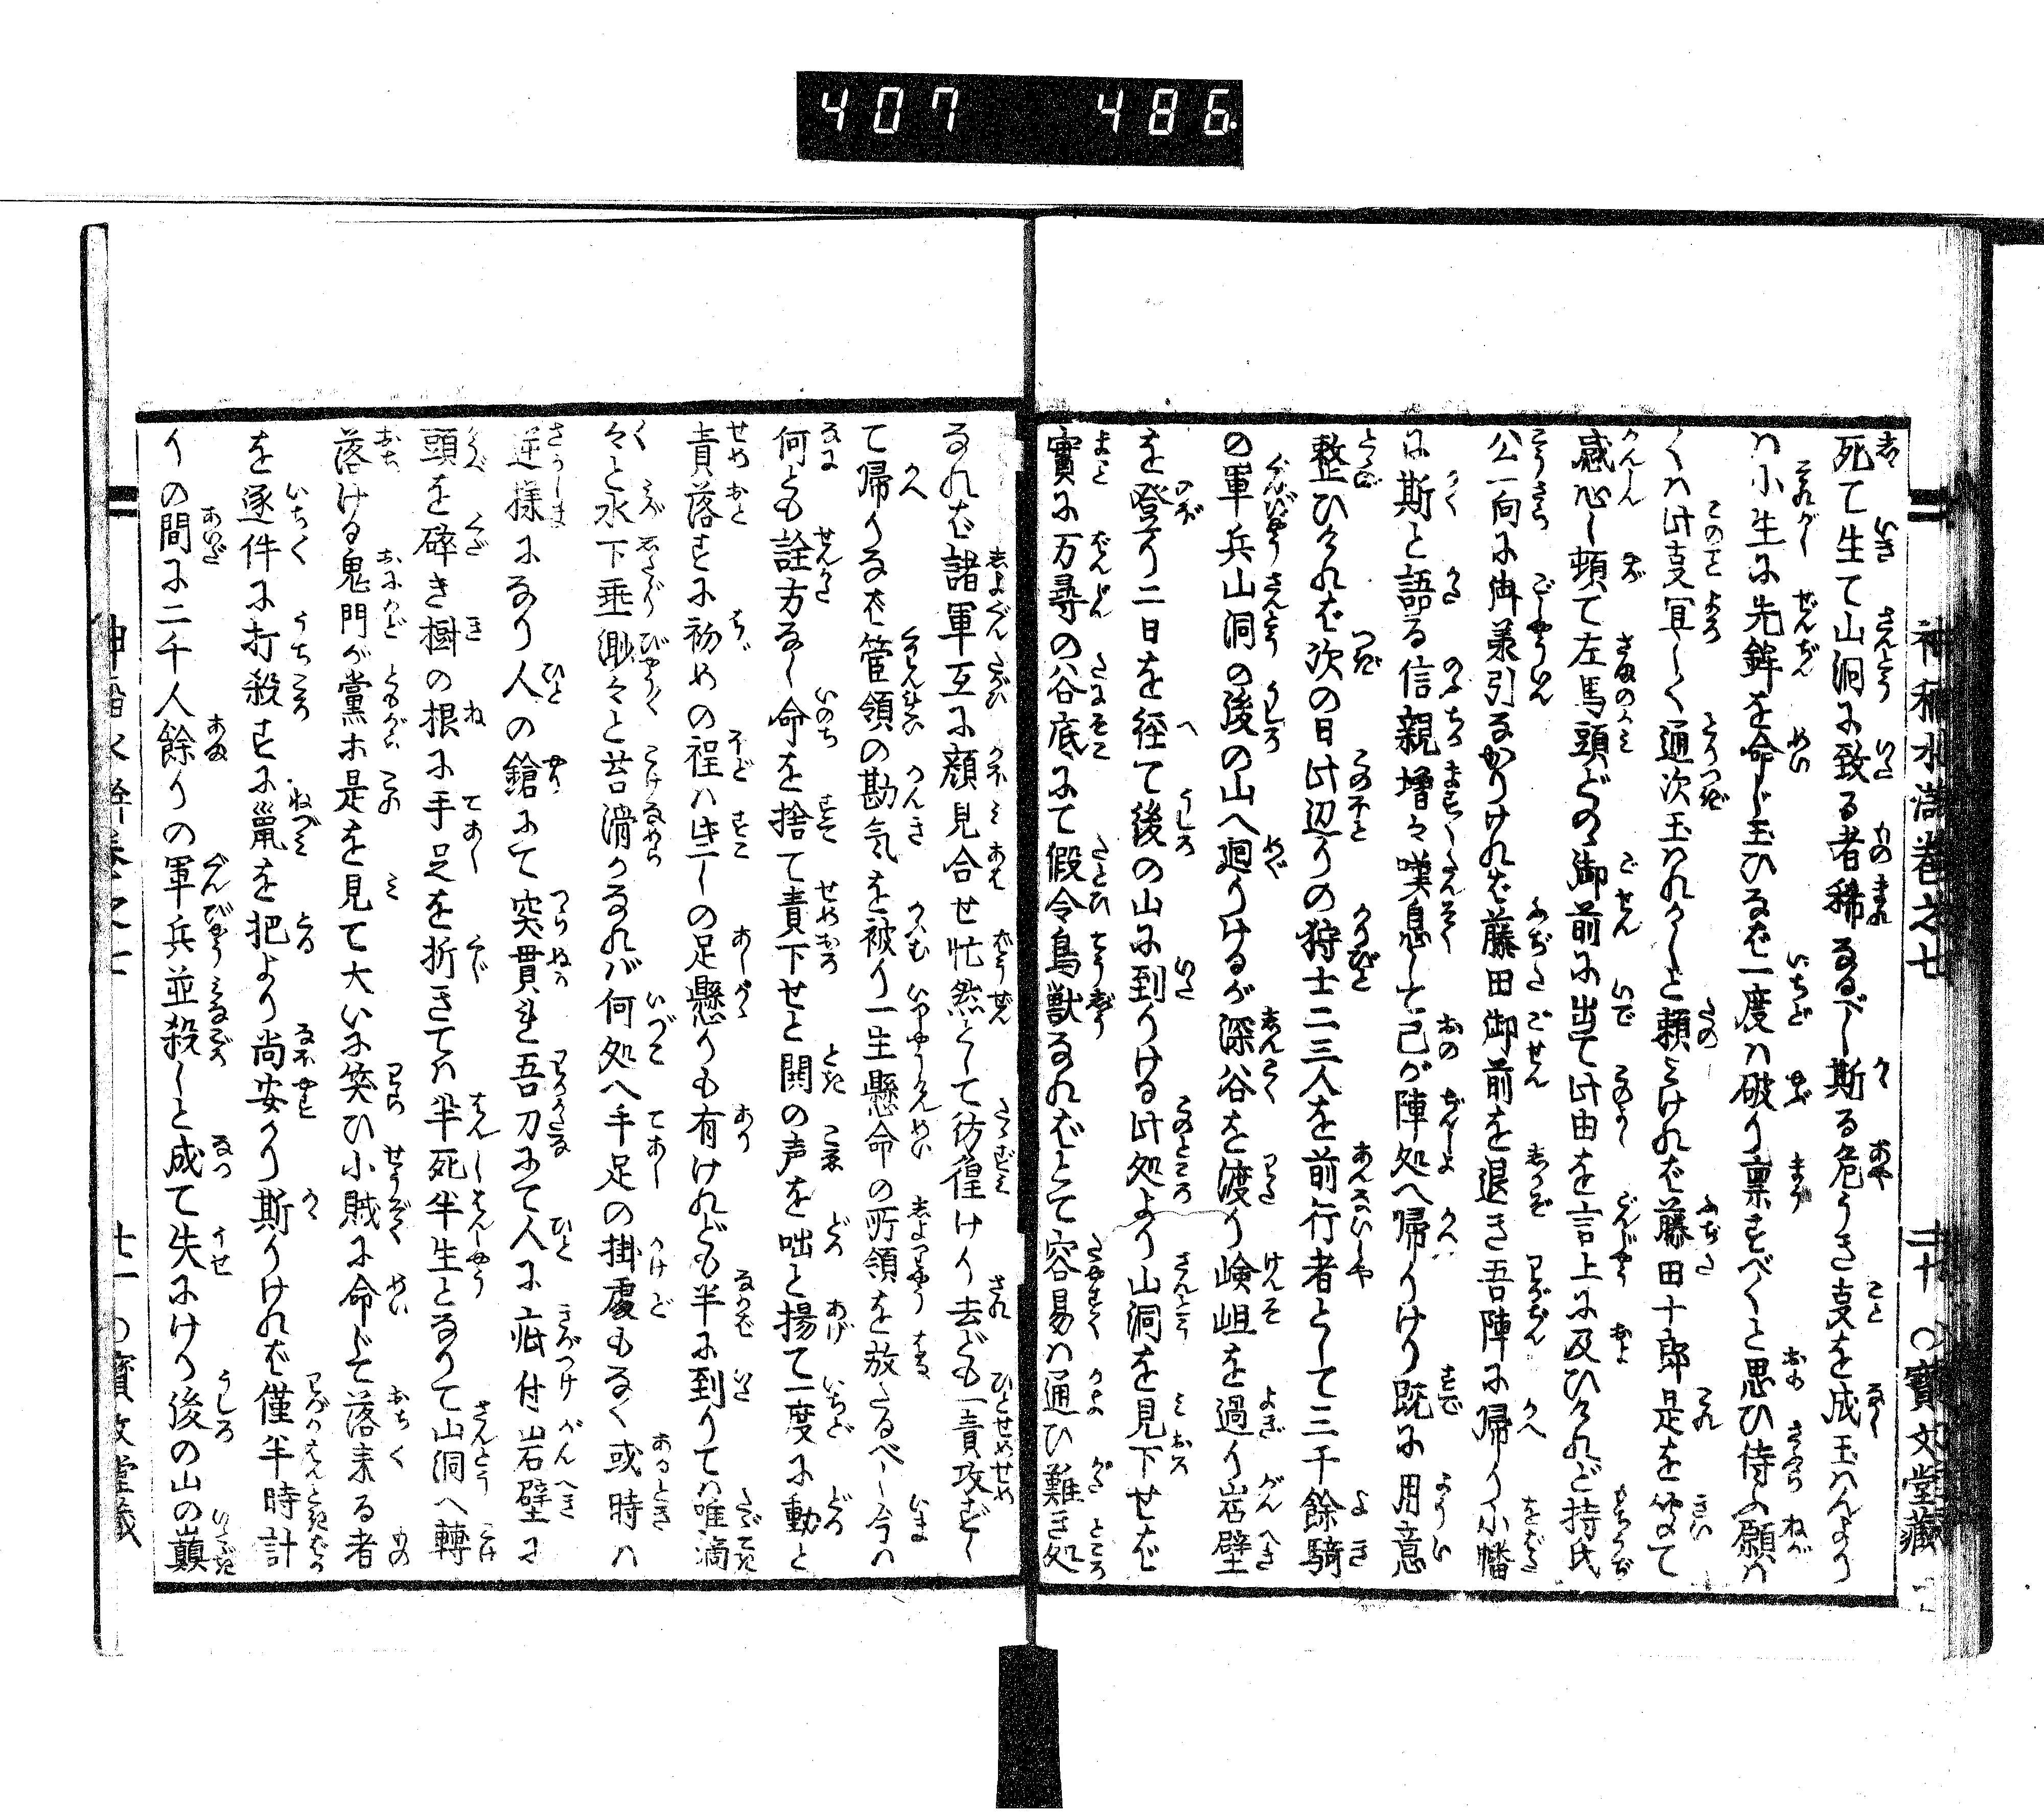 407 486
神稲水滸巻之七 二十 ○寶文堂藏
死て生て山洞に致る者稀なるべし斯る危うき支を成玉はんより
ハ小生に先鉾を命じ玉ひなば一度ハ破り稟すべくと思ひ侍る願ハ
くハ此支宜しく通次玉ハれかしと頼みければ藤田十郎是を
感心し頓て左馬頭どの御前に出て此由を言上に及ひけれど持氏
公一向に御兼引なかりければ藤田御前を退き吾陣に帰り小幡
に斯と語る信親増々嘆息して己が陣処へ帰りけり既に用意
整ひければ次の日此辺りの狩士二三人を前行者として三千餘騎
の軍兵山洞の後の山へ廻りけるが深谷を渡り嶮岨を過り岩壁
を登り二日を径て後の山に到りける此処より山洞を見下せば
實に万尋の谷底にて假令鳥獣なればとて容易ハ通ひ難き処
なれば諸軍互に顔見合せ忙然として彷徨けり去ども一責攻ずし
て帰りなば管領の勘気を被り一生懸命の所領を放たるべし今ハ
何とも詮方なし命を捨て責下せと鬨の声を咄と揚て一度に動と
責落すに初めの程ハ些しの足懸りも有けれども半に到りてハ唯滴
々と水下垂渺々と苔滑かなれバ何処へ手足の掛處もなく或時ハ
逆様になり人の鎗にて突貫れ吾刀にて人に疵付岩壁に
頭を碎き樹の根に手足を折きてハ半死半生となりて山洞へ轉
落ける鬼門が黨ホ是を見て大いに笑ひ小賊に命じて落来る者
を逐件に打殺すに鼠を把より尚安かり斯りければ僅半時計
りの間に二千人餘りの軍兵並殺しと成て失にけり後の山の巓
廿一 ○寶文堂藏